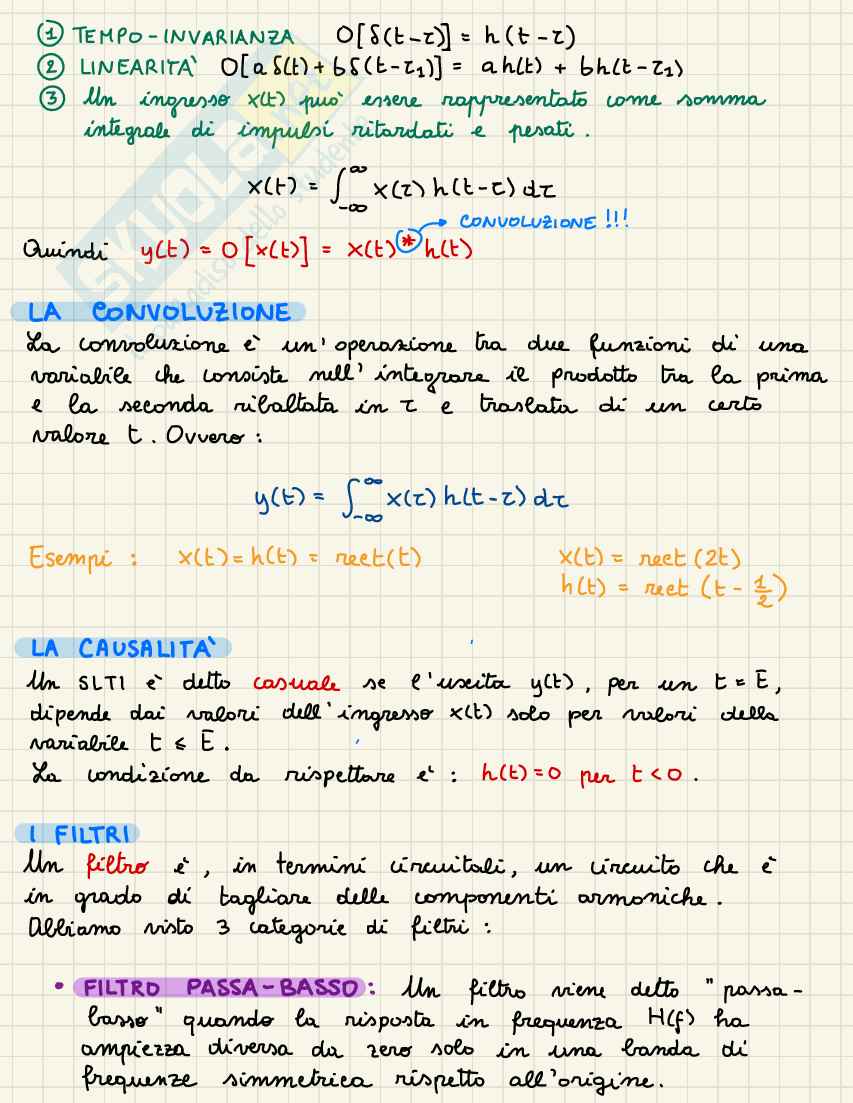 ① TEMPO-INVARIANZA O[δ(t-τ)] = h(t-τ)
② LINEARITÀ O[a δ(t) + b δ(t-τ₁)] = a h(t) + b h(t-τ₁)
③ Un ingresso x(t) può essere rappresentato come somma
integrale di impulsi ritardati e pesati.
x(t) = ∫_{-∞}^{∞} x(τ) h(t-τ) dτ
→ CONVOLUZIONE !!!
Quindi y(t) = O[x(t)] = x(t) * h(t)
LA CONVOLUZIONE
La convoluzione è un'operazione tra due funzioni di una
variabile che consiste nell'integrare il prodotto tra la prima
e la seconda ribaltata in τ e traslata di un certo
valore t. Ovvero:
y(t) = ∫_{-∞}^{∞} x(τ) h(t-τ) dτ
Esempi: x(t) = h(t) = rect(t) x(t) = rect(2t)
h(t) = rect(t - 1/2)
LA CAUSALITÀ
Un SLTI è detto casuale se l'uscita y(t), per un t = E,
dipende dai valori dell'ingresso x(t) solo per valori della
variabile t ≤ E.
La condizione da rispettare è: h(t)=0 per t<0.
I FILTRI
Un filtro è, in termini circuitali, un circuito che è
in grado di tagliare delle componenti armoniche.
Abbiamo visto 3 categorie di filtri:
• FILTRO PASSA-BASSO: Un filtro viene detto "passa-
basso" quando la risposta in frequenza H(f) ha
ampiezza diversa da zero solo in una banda di
frequenze simmetrica rispetto all'origine.